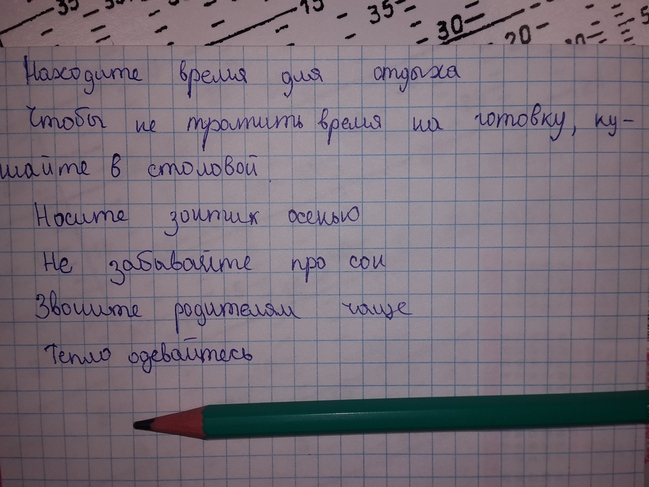 35 15 35 30 20
Находите время для отдыха
Чтобы не тратить время на готовку, ку-
шайте в столовой.
Носите зонтик осенью
Не забывайте про сон
Звоните родителям чаще
Тепло одевайтесь